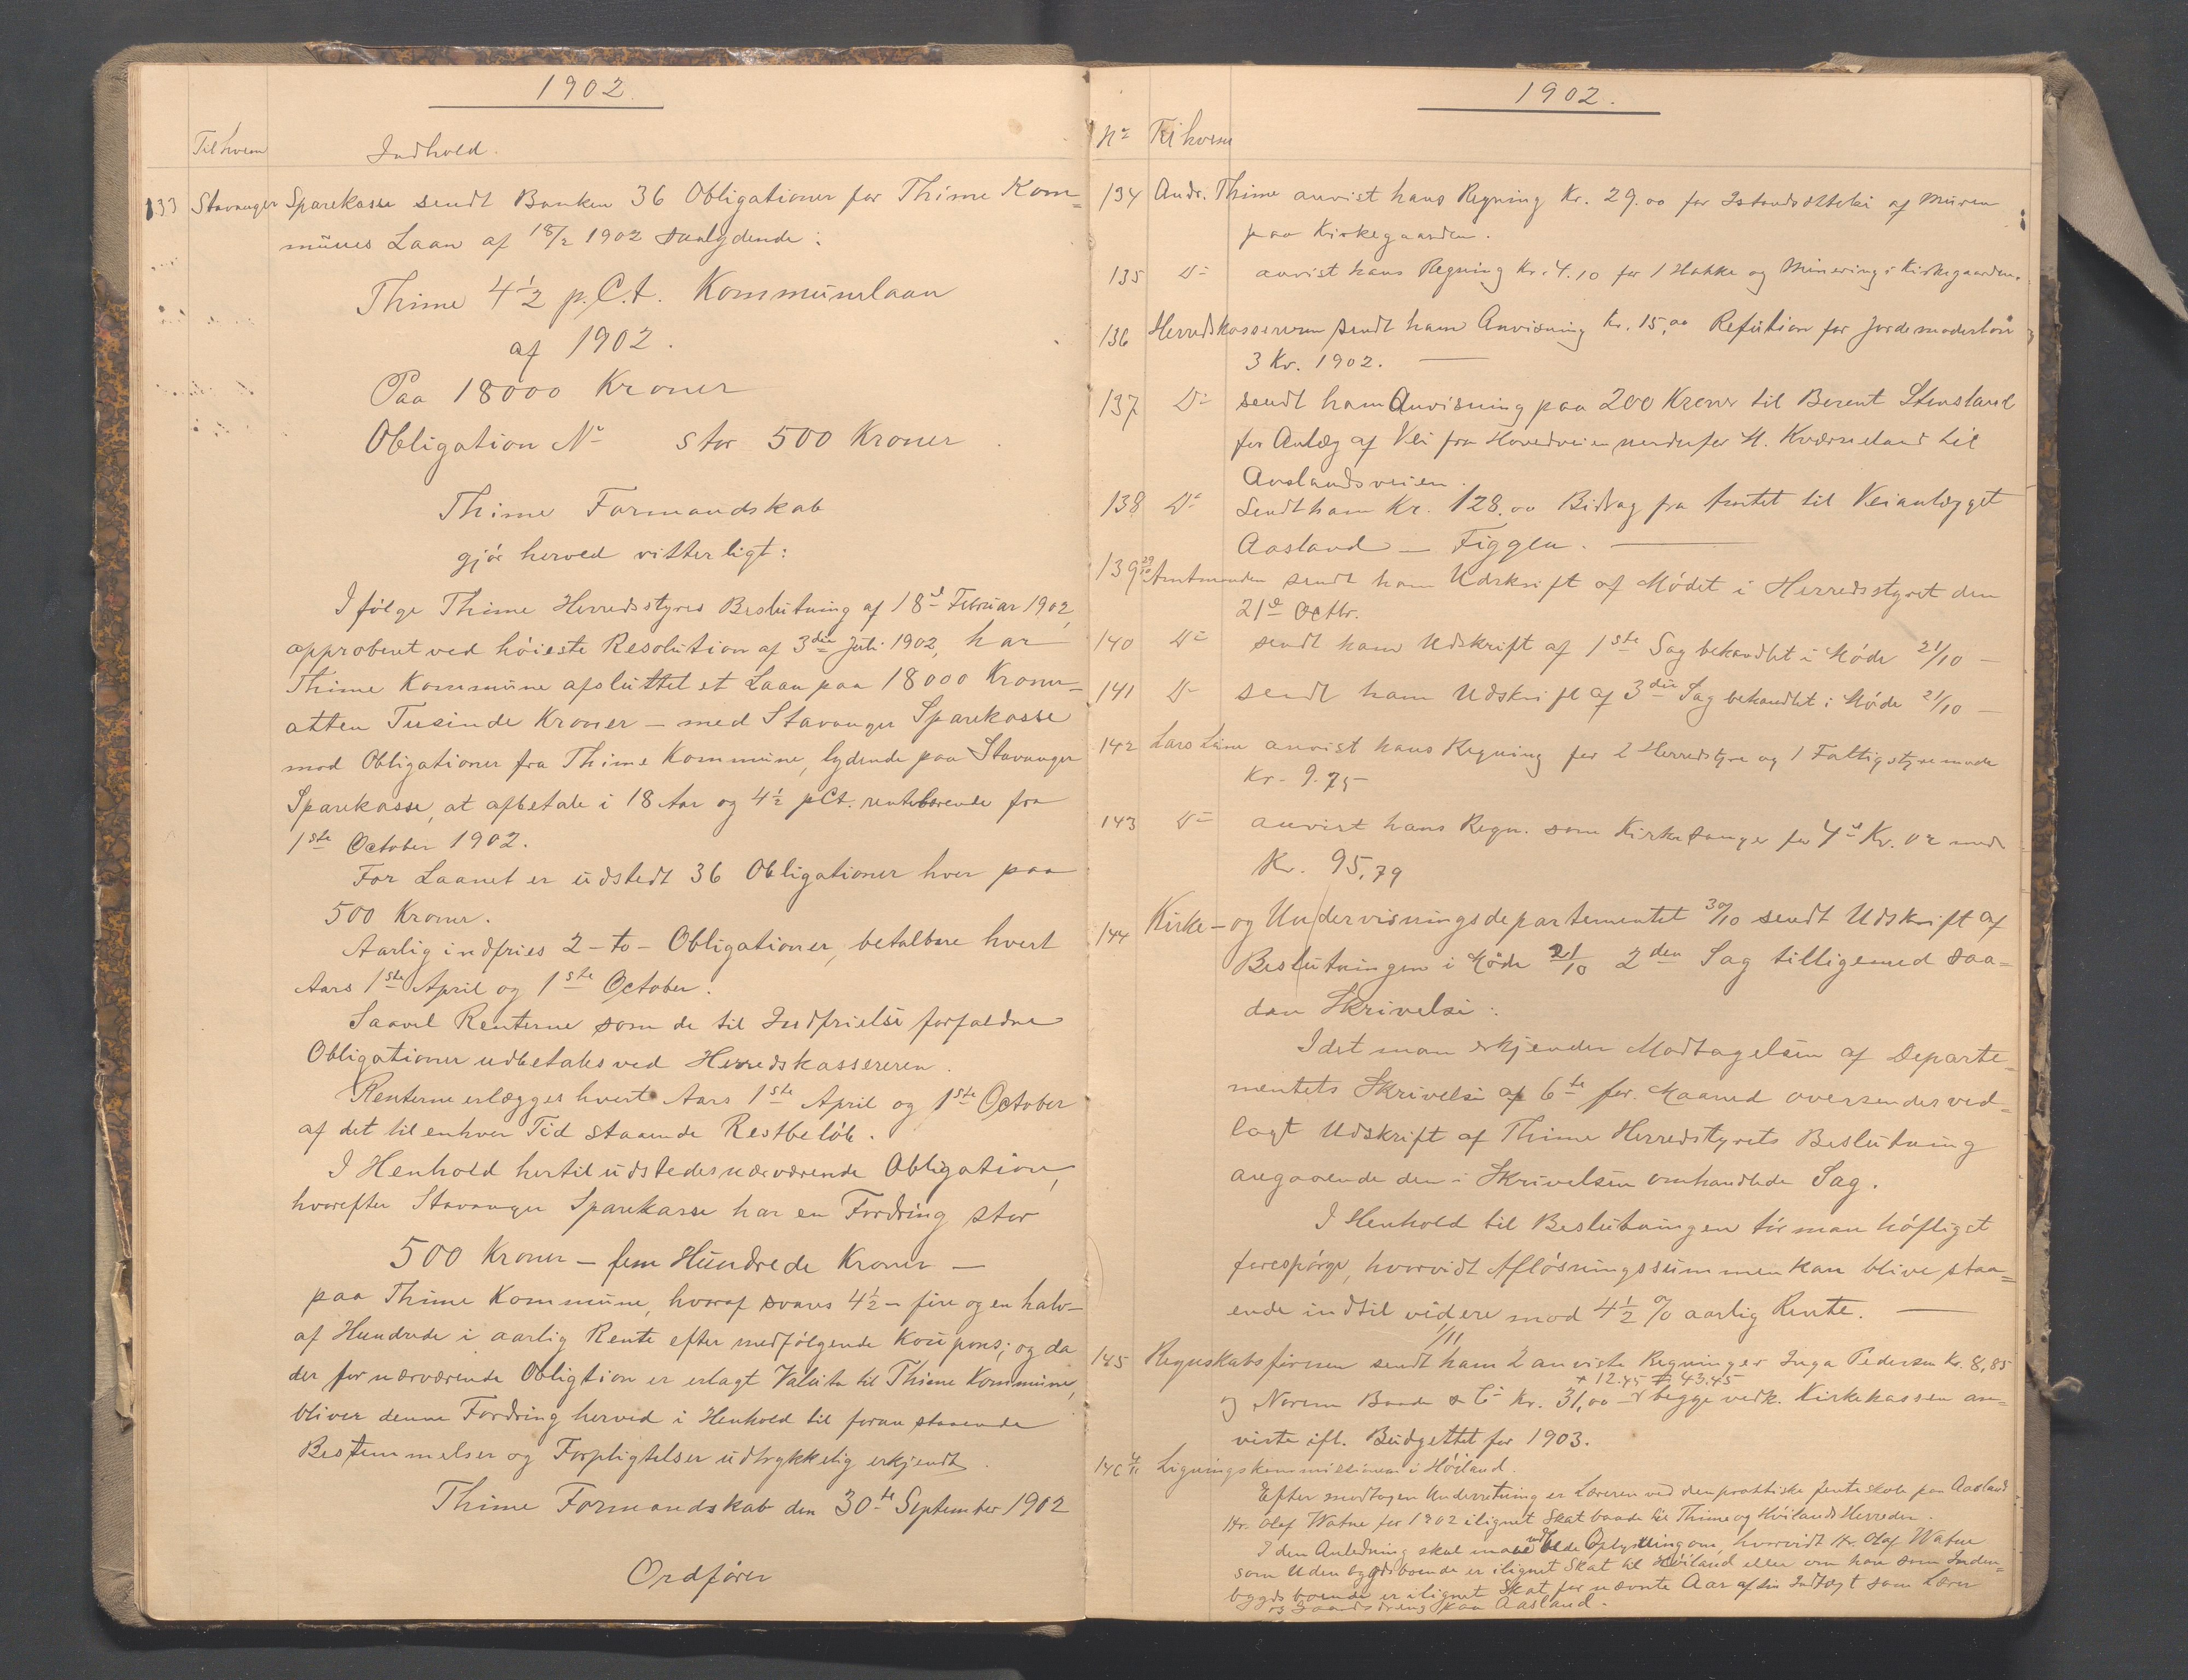 1902.
Til hvem Indhold.
133 Stavanger Sparekasse sendt Banken 36 Obligationer for Thime Kom=
munes Laan af 18/2 1902 saalydende:
Thime 4½ p.C.t. Kommunelaan
af 1902.
Paa 18000 Kroner
Obligation No stor 500 Kroner
Thime Formandskab
gjør herved vitterligt:
I følge Thime Herredsstyres Beslutning af 18de Februar 1902,
approberet ved høieste Resolution af 3die Juli 1902, har
Thime Kommune afsluttet et Laan paa 18000 Kroner –
atten Tusinde Kroner – med Stavanger Sparekasse
mod Obligationer fra Thime Kommune, lydende paa Stavanger
Sparekasse, at afbetale i 18 Aar og 4½ pCt. rentebærende fra
1ste October 1902.
For Laanet er udstedt 36 Obligationer hver paa
500 Kroner.
Aarlig indfries 2 – to – Obligationer, betalbare hvert
Aars 1ste April og 1ste October.
Saavel Renterne som de til Indfrielse forfaldne
Obligationer udbetales ved Herredskassereren.
Renterne erlægges hvert Aars 1ste April og 1ste October
af det til enhver Tid staaende Restbeløb.
I Henhold hertil udstedes nærværende Obligation,
hvorefter Stavanger Sparekasse har en Fordring stor
500 Kroner – fem Hundrede Kroner –
paa Thime Kommune, hvoraf svares 4½ – fire og en halv –
af Hundrede i aarlig Rente efter medfølgende Koupons; og da
der for nærværende Obligtion er erlagt Valuta til Thime Kommune,
bliver denne Fordring herved i Henhold til foran staaende
Bestemmelser og Forpligtelser udtrykkelig erkjendt.
Thime Formandskab den 30te September 1902
Ordfører
1902.
No Til hvem
134 Andr. Thime anvist hans Regning Kr. 29.00 for Istandsættelse af Muren
paa Kirkegaarden.
135 Do anvist hans Regning Kr. 4.10 for 1 Hakke og Minering i Kirkegaarden.
136 Herredskassereren sendt ham Anvisning Kr. 15,00 Refution for Jordemoderløn
3 Kv. 1902.
137 Do sendt ham Anvisning paa 200 Kroner til Berent Stensland
for Anlæg af Vei fra Hovedveien nedenfor H. Kværneland til
Aaslandsveien.
138 Do Sendt ham Kr. 128.00 Bidrag fra Amtet til Veianlægget
Aasland – Figgen.
139 29/10 Amtmanden sendt ham Udskrift af Mødet i Herredsstyret den
21de Octbr.
140 Do sendt ham Udskrift af 1ste Sag behandlet i Møde 21/10 –
141 Do sendt ham Udskrift af 3die Sag behandlet i Møde 21/10 –
142 Lars Lime anvist hans Regning for 2 Herredstyre og 1 Fattigstyremøde
Kr. 9.75
143 Do anvist hans Regn. som Kirkesanger for 4de Kv. 02 med
Kr. 95,79
144 Kirke- og Undervisningsdepartementet 30/10 sendt Udskrift af
Beslutningen i Møde 21/10 2den Sag tilligemed saa=
dan Skrivelse:
Idet man erkjender Modtagelsen af Departe=
mentets Skrivelse af 6te for. Maaned oversendes ved=
lagt Udskrift af Thime Herredstyrets Beslutning
angaaende den i Skrivelsen omhandlede Sag.
I Henhold til Beslutningen tør man høfligst
forespørge, hvorvidt Afløsningssummen kan blive staa=
ende indtil videre mod 4½ % aarlig Rente.
1/11
145 Regnskabsføreren sendt ham 2 anviste Regninger Inga Pedersen Kr. 8,85
+ 12.45 43.45
og Norem Baade & Co Kr. 31,00 – begge vedk. Kirkekassen an=
viste ifl. Budgettet for 1903.
146 4/11 Ligningskommissionen i Høiland.
Efter modtagen Underretning er Læreren ved den praktiske Jenteskole paa Aasland
Hr. Olaf Watne for 1902 ilignet Skat baade til Thime og Høilands Herreder.
I den Anledning skal man udbede Oplysning om, hvorvidt Hr. Olaf Watne
som Udenbygdsboende er ilignet Skat til Høiland eller om han som Inden=
bygdsboende er ilignet Skat for nævnte Aar af sin Indtægt som Lærer
og paa Aasland.